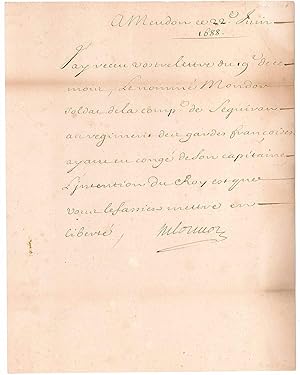 A Meudon ce 22e Juin
1688.
J'ay receu vostre lettre du 9e de ce
mois, Le nommé Mondor
soldat de la compe de Sequiran
au regiment des gardes françoises
ayant eu congé de son capitaine
L'intention du Roy est que
vous le fassiez mettre en
liberté,